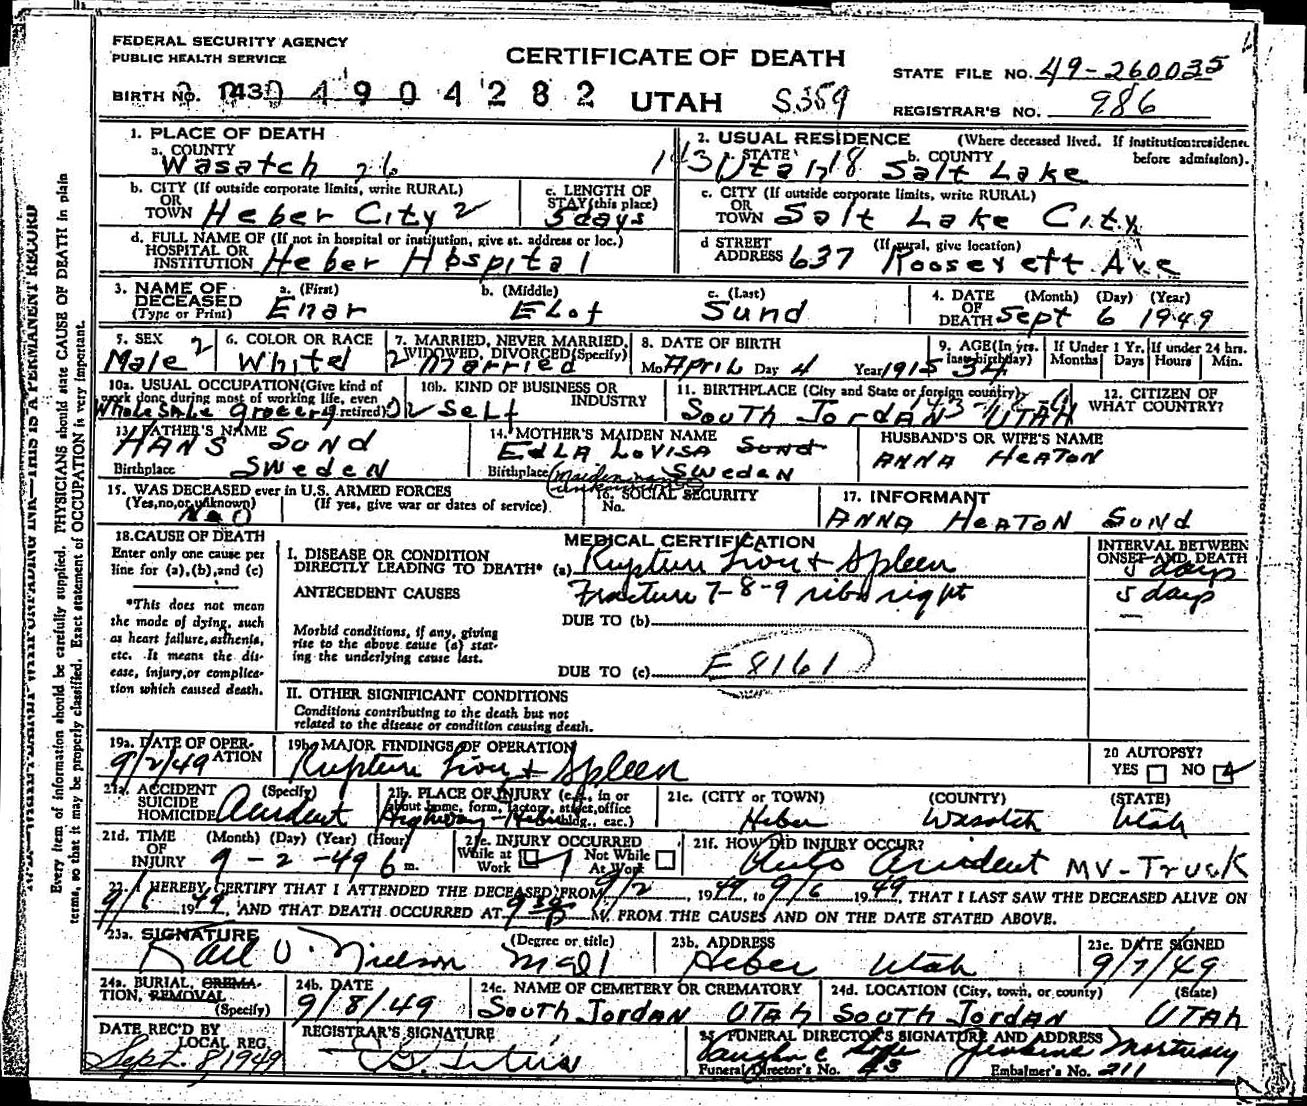 FEDERAL SECURITY AGENCY
PUBLIC HEALTH SERVICE
CERTIFICATE OF DEATH
STATE FILE NO. 49-260035
BIRTH NO. 430 4904282 UTAH S359
REGISTRAR'S NO. 986
1. PLACE OF DEATH
a. COUNTY
Wasatch 26
2. USUAL RESIDENCE (Where deceased lived. If institution:residence before admission).
a. STATE b. COUNTY
Utah 18 Salt Lake
b. CITY (If outside corporate limits, write RURAL)
OR
TOWN Heber City 2
c. LENGTH OF
STAY (this place)
5 days
c. CITY (If outside corporate limits, write RURAL)
OR
TOWN Salt Lake City
d. FULL NAME OF (If not in hospital or institution, give st. address or loc.)
HOSPITAL OR
INSTITUTION Heber Hospital
d STREET (If rural, give location)
ADDRESS 637 Roosevelt Ave
3. NAME OF
DECEASED
(Type or Print)
a. (First) b. (Middle) c. (Last)
Enar Elof Sund
4. DATE (Month) (Day) (Year)
OF
DEATH Sept 6 1949
5. SEX
Male 2
6. COLOR OR RACE
White
7. MARRIED, NEVER MARRIED,
WIDOWED, DIVORCED (Specify)
2 Married
8. DATE OF BIRTH
Mo April Day 4 Year 1915
9. AGE (In yrs.
last birthday)
34
If Under 1 Yr. If under 24 hrs.
Months Days Hours Min.
10a. USUAL OCCUPATION (Give kind of
work done during most of working life, even
if retired)
Wholesale Grocery
10b. KIND OF BUSINESS OR
INDUSTRY
Self
11. BIRTHPLACE (City and State or foreign country)
South Jordan Utah
12. CITIZEN OF
WHAT COUNTRY?
13. FATHER'S NAME
Hans Sund
Birthplace Sweden
14. MOTHER'S MAIDEN NAME
Edla Lovisa Sund
Birthplace Sweden
(Maiden name unknown)
HUSBAND'S OR WIFE'S NAME
Anna Heaton
15. WAS DECEASED ever in U.S. ARMED FORCES
(Yes, no, or unknown) (If yes, give war or dates of service).
No
16. SOCIAL SECURITY
No.
17. INFORMANT
Anna Heaton Sund
18. CAUSE OF DEATH
Enter only one cause per
line for (a), (b), and (c)
*This does not mean
the mode of dying, such
as heart failure, asthenia,
etc. It means the dis-
ease, injury, or complica-
tion which caused death.
MEDICAL CERTIFICATION
I. DISEASE OR CONDITION
DIRECTLY LEADING TO DEATH* (a) Rupture Liver & Spleen
ANTECEDENT CAUSES
Fracture 7-8-9 ribs right
DUE TO (b)
Morbid conditions, if any, giving
rise to the above cause (a) stat-
ing the underlying cause last.
DUE TO (c) E 8161
II. OTHER SIGNIFICANT CONDITIONS
Conditions contributing to the death but not
related to the disease or condition causing death.
INTERVAL BETWEEN
ONSET AND DEATH
5 days
5 days
19a. DATE OF OPER-
ATION
9/2/49
19b. MAJOR FINDINGS OF OPERATION
Rupture Liver & Spleen
20 AUTOPSY?
YES NO
21a. ACCIDENT (Specify)
SUICIDE
HOMICIDE Accident
21b. PLACE OF INJURY (e.g., in or
about home, form, factory, street, office
bldg., etc.)
Highway - Heber
21c. (CITY or TOWN) (COUNTY) (STATE)
Heber Wasatch Utah
21d. TIME (Month) (Day) (Year) (Hour)
OF
INJURY 9-2-49 6 m.
21e. INJURY OCCURRED
While at Work Not While At Work
21f. HOW DID INJURY OCCUR?
Auto Accident MV-Truck
22. I HEREBY CERTIFY THAT I ATTENDED THE DECEASED FROM 9/2, 1949, to 9/6 1949, THAT I LAST SAW THE DECEASED ALIVE ON
9/6 1949, AND THAT DEATH OCCURRED AT 9 30 P M. FROM THE CAUSES AND ON THE DATE STATED ABOVE.
23a. SIGNATURE (Degree or title)
Karl O. Nielson
23b. ADDRESS
Heber Utah
23c. DATE SIGNED
9/7/49
24a. BURIAL, CREMA-
TION, REMOVAL
(Specify)
24b. DATE
9/8/49
24c. NAME OF CEMETERY OR CREMATORY
South Jordan Utah
24d. LOCATION (City, town, or county) (State)
South Jordan Utah
DATE REC'D BY
LOCAL REG.
Sept. 8, 1949
REGISTRAR'S SIGNATURE
25 FUNERAL DIRECTOR'S SIGNATURE AND ADDRESS
Jenkins Mortuary
Funeral Director's No. Embalmer's No. 211
Every item of information should be carefully supplied. PHYSICIANS should state CAUSE OF DEATH in plain
terms, so that it may be properly classified. Exact statement of OCCUPATION is very important.
THIS IS A PERMANENT RECORD